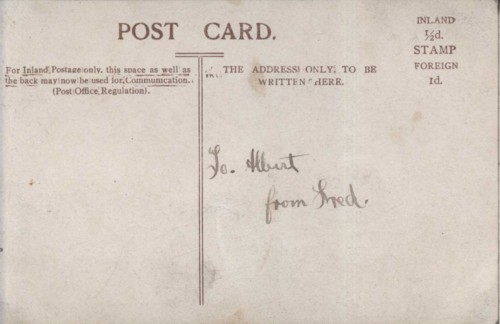 POST CARD.
INLAND
½d.
STAMP
FOREIGN
1d.
For Inland Postage only, this space as well as
the back may now be used for Communication.
(Post Office Regulation).
THE ADDRESS ONLY, TO BE
WRITTEN HERE.
To. Albert
from Fred.